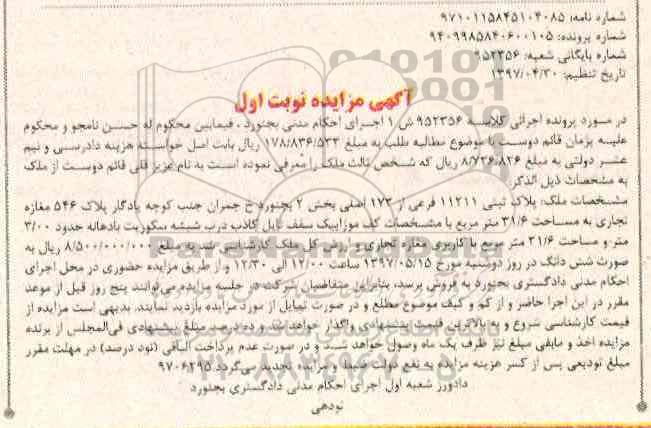 شماره نامه: ۹۷۱۰۱۱۵۸۴۵۱۰۴۰۸۵
شماره پرونده: ۹۴۰۹۹۸۵۸۴۰۶۰۰۱۰۵
شماره بایگانی شعبه: ۹۵۲۳۵۶
تاریخ تنظیم: ۱۳۹۷/۰۴/۳۰
آگهی مزایده نوبت اول
در مورد پرونده اجرائی کلاسه ۹۵۲۳۵۶ ش ۱ اجرای احکام مدنی بجنورد، فیمابین محکوم له حسن نامجو و محکوم
علیه پژمان قائم دوست با موضوع مطالبه طلب به مبلغ ۱۷۸/۸۳۶/۵۳۳ ریال بابت اصل خواسته هزینه دادرسی و نیم
عشر دولتی به مبلغ ۸/۷۲۶/۸۲۶ ریال که شخص ثالث ملک را معرفی نموده است به نام عزیز قلی قائم دوست از ملک
به مشخصات ذیل الذکر:
مشخصات ملک: پلاک ثبتی ۱۱۲۱۱ فرعی از ۱۷۳ اصلی بخش ۲ بجنورد خ چمران جنب کوچه یادگار پلاک ۵۴۶ مغازه
تجاری به مساحت ۳۱/۶ متر مربع با مشخصات کف موزاییک سقف تایل کاذب درب شیشه سکوریت بادهانه حدود ۳/۰۰
متر و مساحت ۳۱/۶ متر مربع با کاربری مغازه تجاری و ارزش کل ملک کارشناسی شد به مبلغ ۸/۵۰۰/۰۰۰/۰۰۰ ریال به
صورت شش دانگ در روز دوشنبه مورخ ۱۳۹۷/۰۵/۱۵ ساعت ۱۲/۰۰ الی ۱۲/۳۰ و از طریق مزایده حضوری در محل اجرای
احکام مدنی دادگستری بجنورد به فروش برسد، بنابراین متقاضیان شرکت در جلسه مزایده می‌توانند پنج روز قبل از موعد
مقرر در این اجرا حاضر و از کم و کیف موضوع مطلع و در صورت تمایل از مورد مزایده بازدید نمایند. بدیهی است مزایده از
قیمت کارشناسی شروع و به بالاترین قیمت پیشنهادی واگذار خواهد شد و ده درصد مبلغ پیشنهادی فی‌المجلس از برنده
مزایده اخذ و مابقی مبلغ نیز ظرف یک ماه وصول خواهد شد و در صورت عدم پرداخت الباقی (نود درصد) در مهلت مقرر
مبلغ تودیعی پس از کسر هزینه مزایده به نفع دولت ضبط و مزایده تجدید می‌گردد. ۹۷۰۶۲۹۵
دادورز شعبه اول اجرای احکام مدنی دادگستری بجنورد
نودهی
ParsNamadData
۰۲۱-۸۸۳۴۹۶۷۰-۵